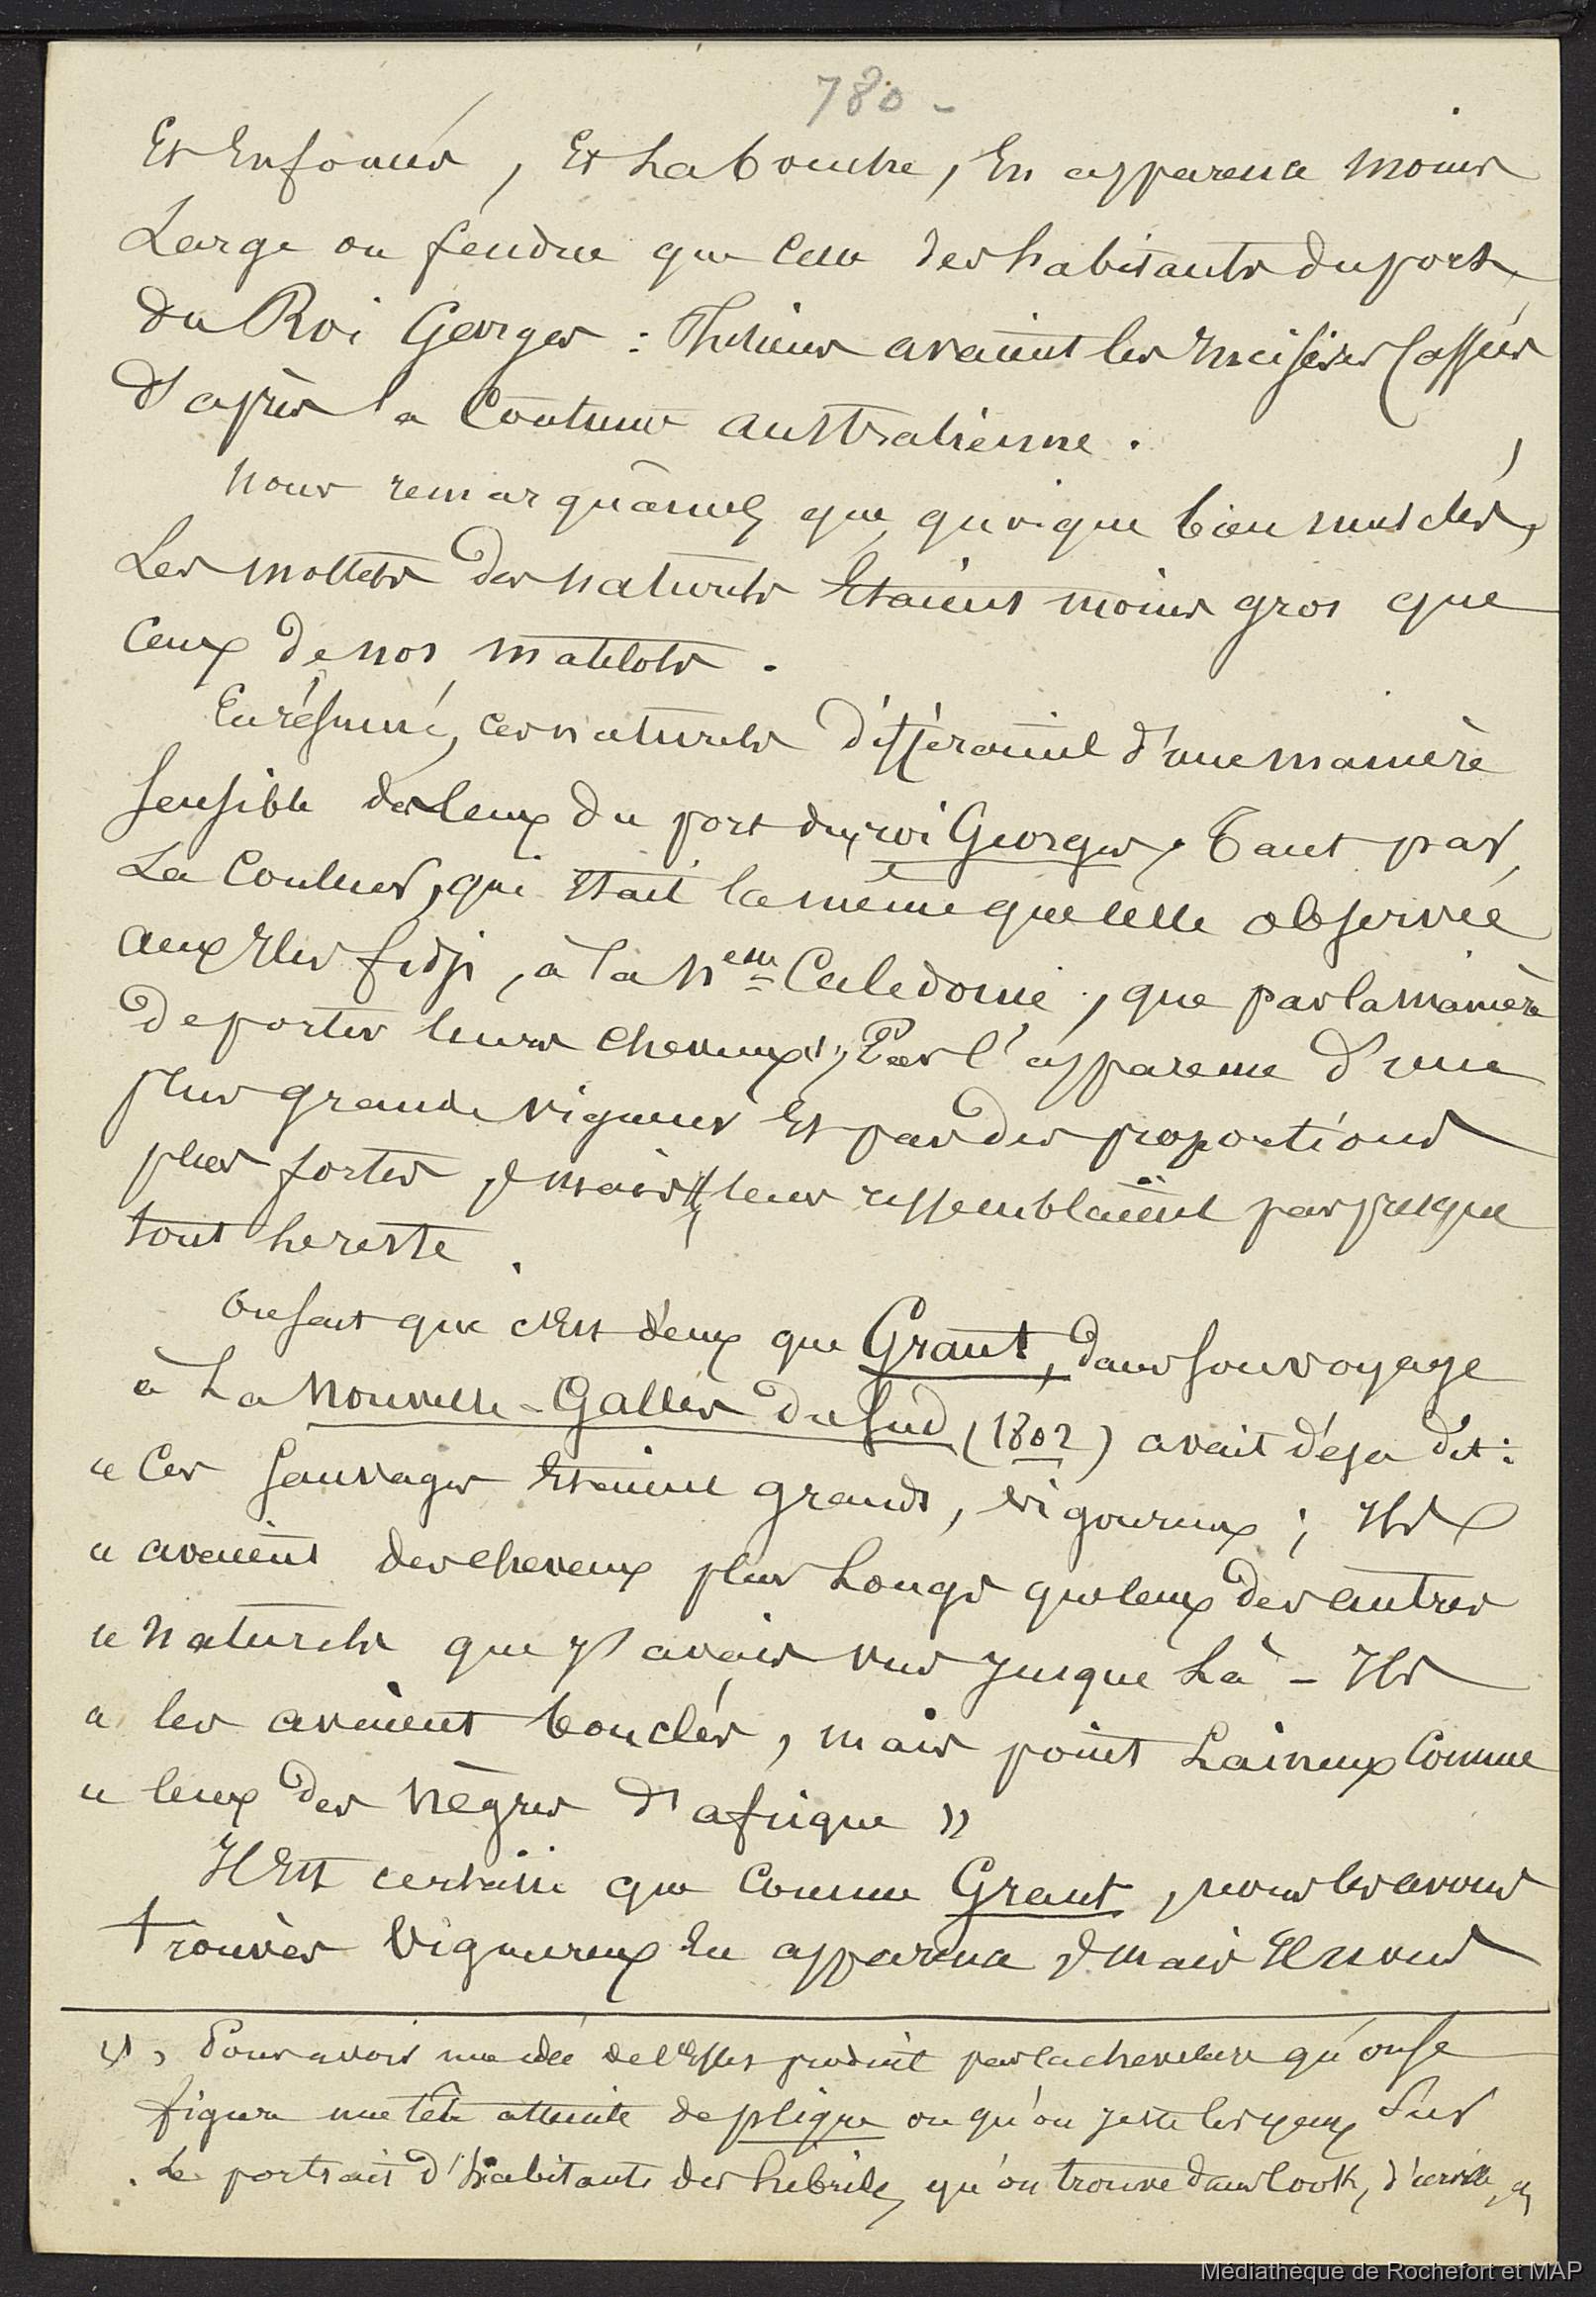 780 -
Et Enfoncés, Et La bouche, En apparence moins
Large ou fendue que Celle des habitants du port
du Roi Georges : Plusieurs avaient les Incisives Cassées
d'après la Coutume australienne.
Nous remarquâmes que, quoique bien musclés,
Les mollets des naturels Etaient moins gros que
Ceux de nos matelots.
En résumé, ces naturels différaient d'une manière
Sensible de Ceux du port du roi Georges, Tant par
La Couleur, qui Etait la même que celle observée
aux Iles fidji, à la Nelle Calédonie, que par la manière
de porter leurs cheveux (1), Par l'apparence d'une
plus grande vigueur Et par des proportions
plus fortes, mais leur ressemblaient par presque
tout le reste.
On sait que c'Est d'eux que Grant, dans son voyage
à La Nouvelle-Galles du Sud (1802) avait déja dit :
« Ces Sauvages Etaient grands, vigoureux ; Ils
« avaient des cheveux plus Longs que Ceux des autres
« Naturels que J'avais vus Jusque Là - Ils
« les avaient bouclés, mais point Laineux Comme
« Ceux des Nègres d'afrique »
Il Est certain que Comme Grant, nous les avons
trouvés Vigoureux En apparence, mais Ils nous
(1), Pour avoir une idée de l'Effet produit par la chevelure qu'on se
figure une tête atteinte de plique ou qu'on Jette les yeux Sur
Le portrait d'habitants des hébrides, qu'on trouve dans Cook, d'urville,
Médiathèque de Rochefort et MAP